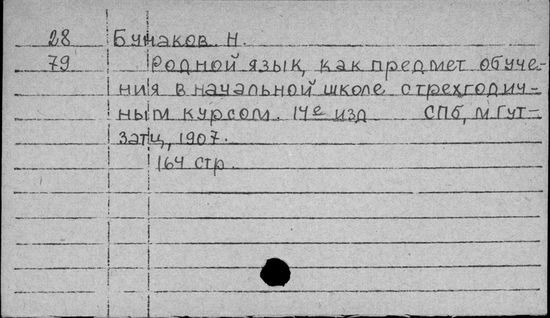 28 Бунаков Н.
79 Родной язык, как предмет обуче-
ния в начальной школе с трехгодич-
ным курсом. 14е изд СПб, М. Гут-
затц, 1907.
164 стр.